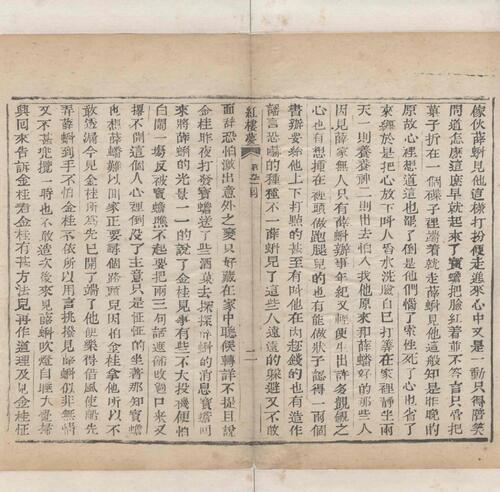 傢伙薛蝌見他這樣打扮便走進來心中又是一動只得陪笑
問道怎麽這麽早就起來了寶蟾把臉紅着並不答言只管把
菓子折在一個碟子裡端着就走薛蝌見他這般知是昨晚的
原故心裡想道這也罷了倒是他們惱了索性死了心也省了
來纏於是把心放下喚人舀水洗臉自己打算在家裡靜坐兩
天一則養養神二則出去怕人找他原來和薛蟠好的那些人
因見薛家無人只有薛蝌辦事年紀又輕便生出許多覬覦之
心也有想挿在裡頭做跑腿兒的也有能做狀子認得一兩個
書辦要給他上下打點的甚至有叫他在内趕錢的也有造作
謡言恐嚇的種種不一薛蝌見了這些人遠遠的躱避又不敢
紅樓夢 回 二
面辭恐怕激出意外之變只好藏在家中聽候轉詳不提且說
金桂昨夜打發寶蟾送了些酒菓去探探薛蝌的消息寶蟾回
來將薛蝌的光景一一的說了金桂見事有些不大投機便怕
白閙一塲反被寶蟾瞧不起要把兩三句話遮飾改過口來又
撂不開這個人心裡倒沒了主意只是怔怔的坐着那知寶蟾
也想薛蟠難以回家正要尋個路頭兒因怕金桂拿他所以不
敢透漏今見金桂所爲先已開了端了他便樂得借風使船先
弄薛蝌到手不怕金桂不依所以用言挑撥見薛蝌似非無情
又不甚兜攬一時也不敢造次後來見薛蝌吹燈自睡大覺掃
興回來告訴金桂看金桂有甚方法兒再作道理及見金桂怔